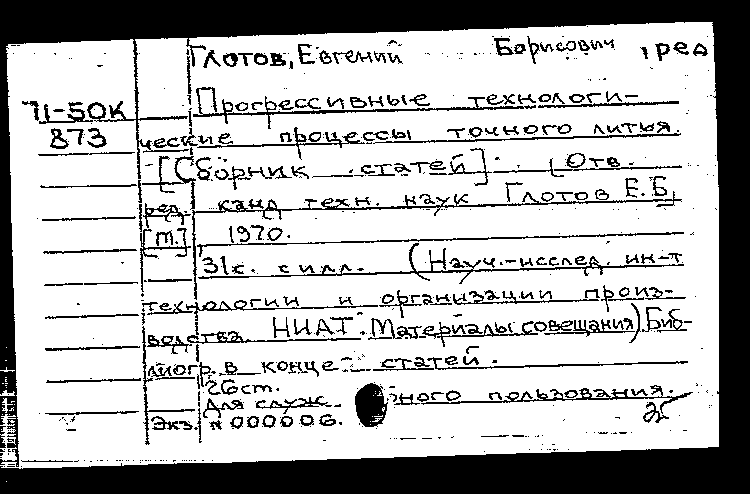 Глотов, Евгений Борисович, ред
71-50К Прогрессивные технологи-
873 ческие процессы точного литья.
[Сборник статей]. [Отв.
ред. канд техн. наук Глотов Е.Б.]
[М.] 1970.
31с. с илл. (Науч.-исслед. ин-т
технологии и организации произ-
водства НИАТ. Материалы совещания). Биб-
лиогр. в конце статей.
26см.
Для служ ного пользования.
Экз. № 000006.